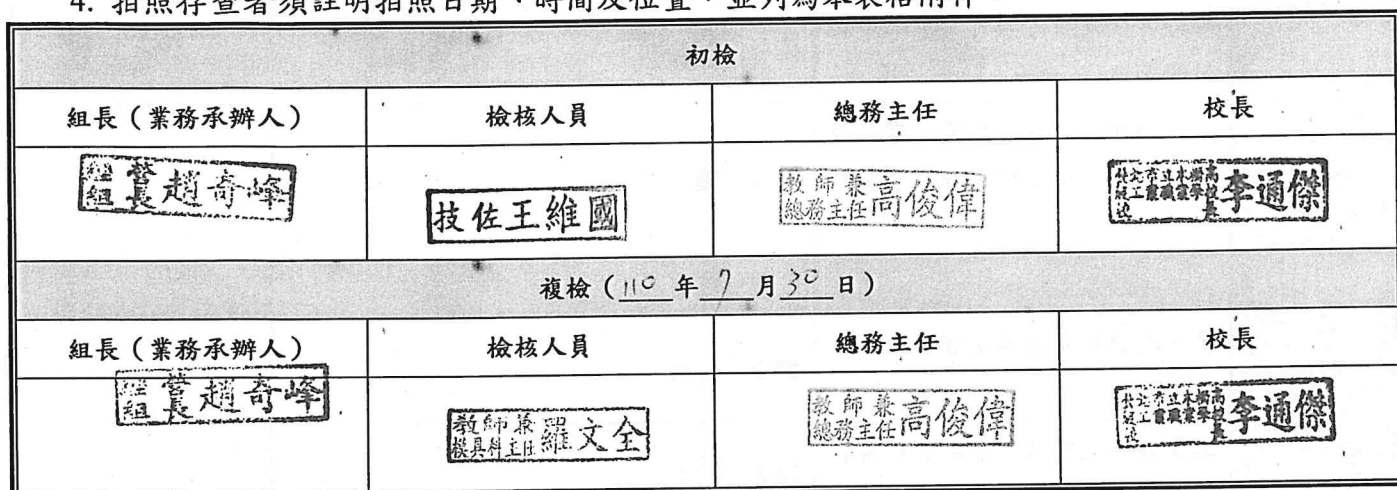 4. 拍照存查者須註明拍照日期、時間及位置，並列為本表格附件
初檢
組長（業務承辦人） 檢核人員 總務主任 校長
經營組長 趙奇峰
技佐王維國
教師兼總務主任 高俊偉
李通傑
複檢（110年7月30日）
組長（業務承辦人） 檢核人員 總務主任 校長
經營組長 趙奇峰
教師兼模具科主任 羅文全
教師兼總務主任 高俊偉
李通傑